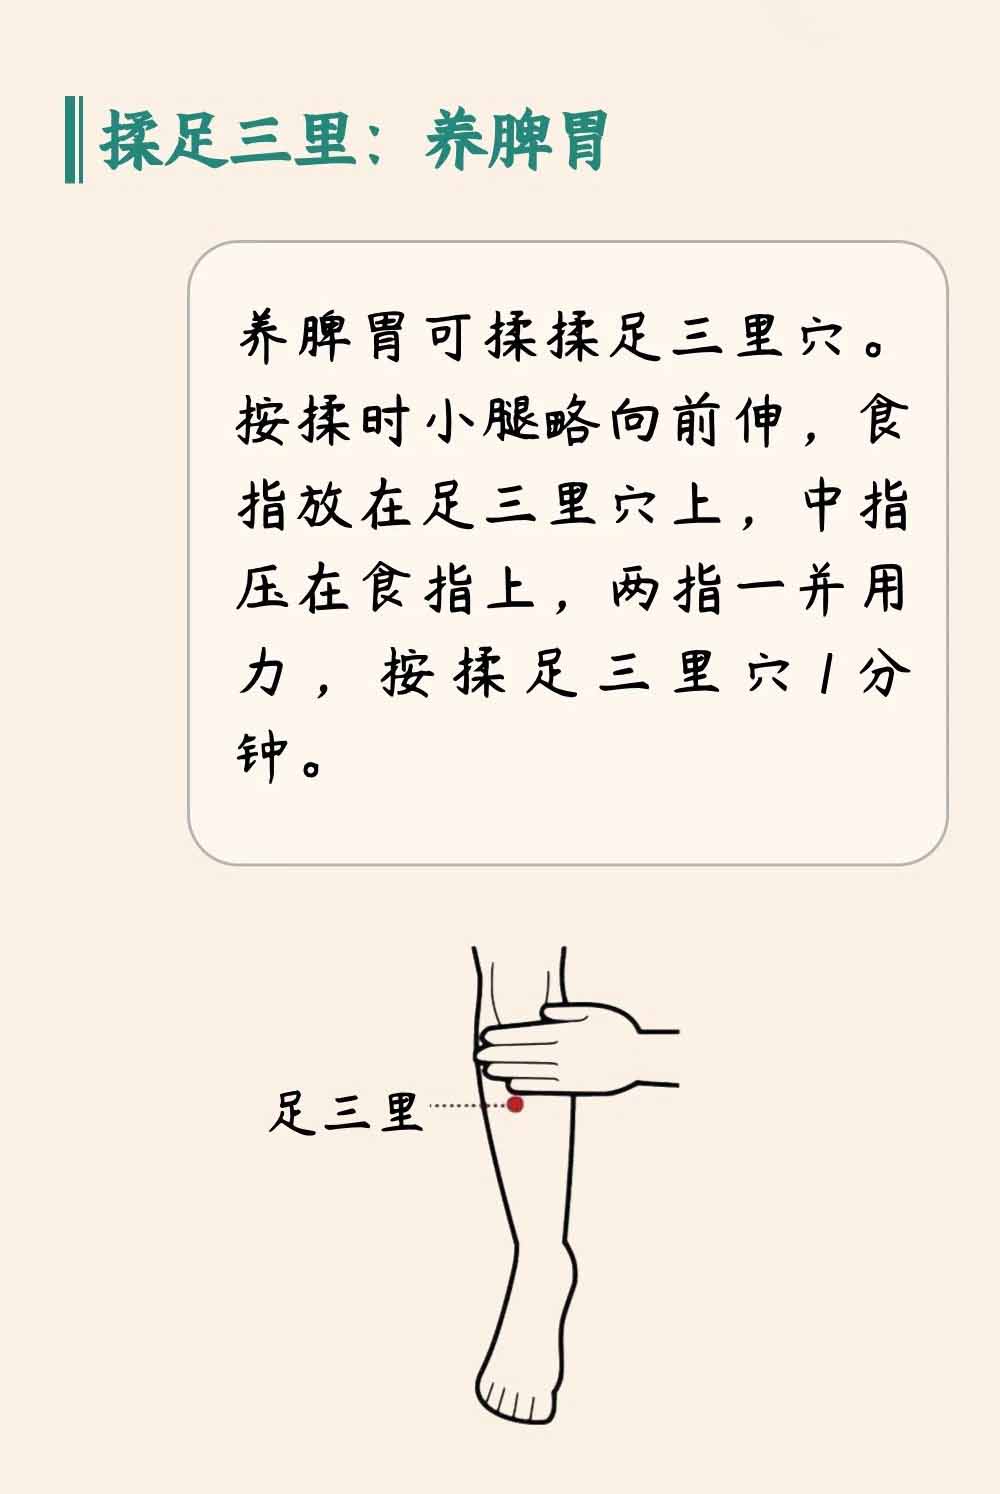 揉足三里：养脾胃
养脾胃可揉揉足三里穴。
按揉时小腿略向前伸，食
指放在足三里穴上，中指
压在食指上，两指一并用
力，按揉足三里穴1分
钟。
足三里